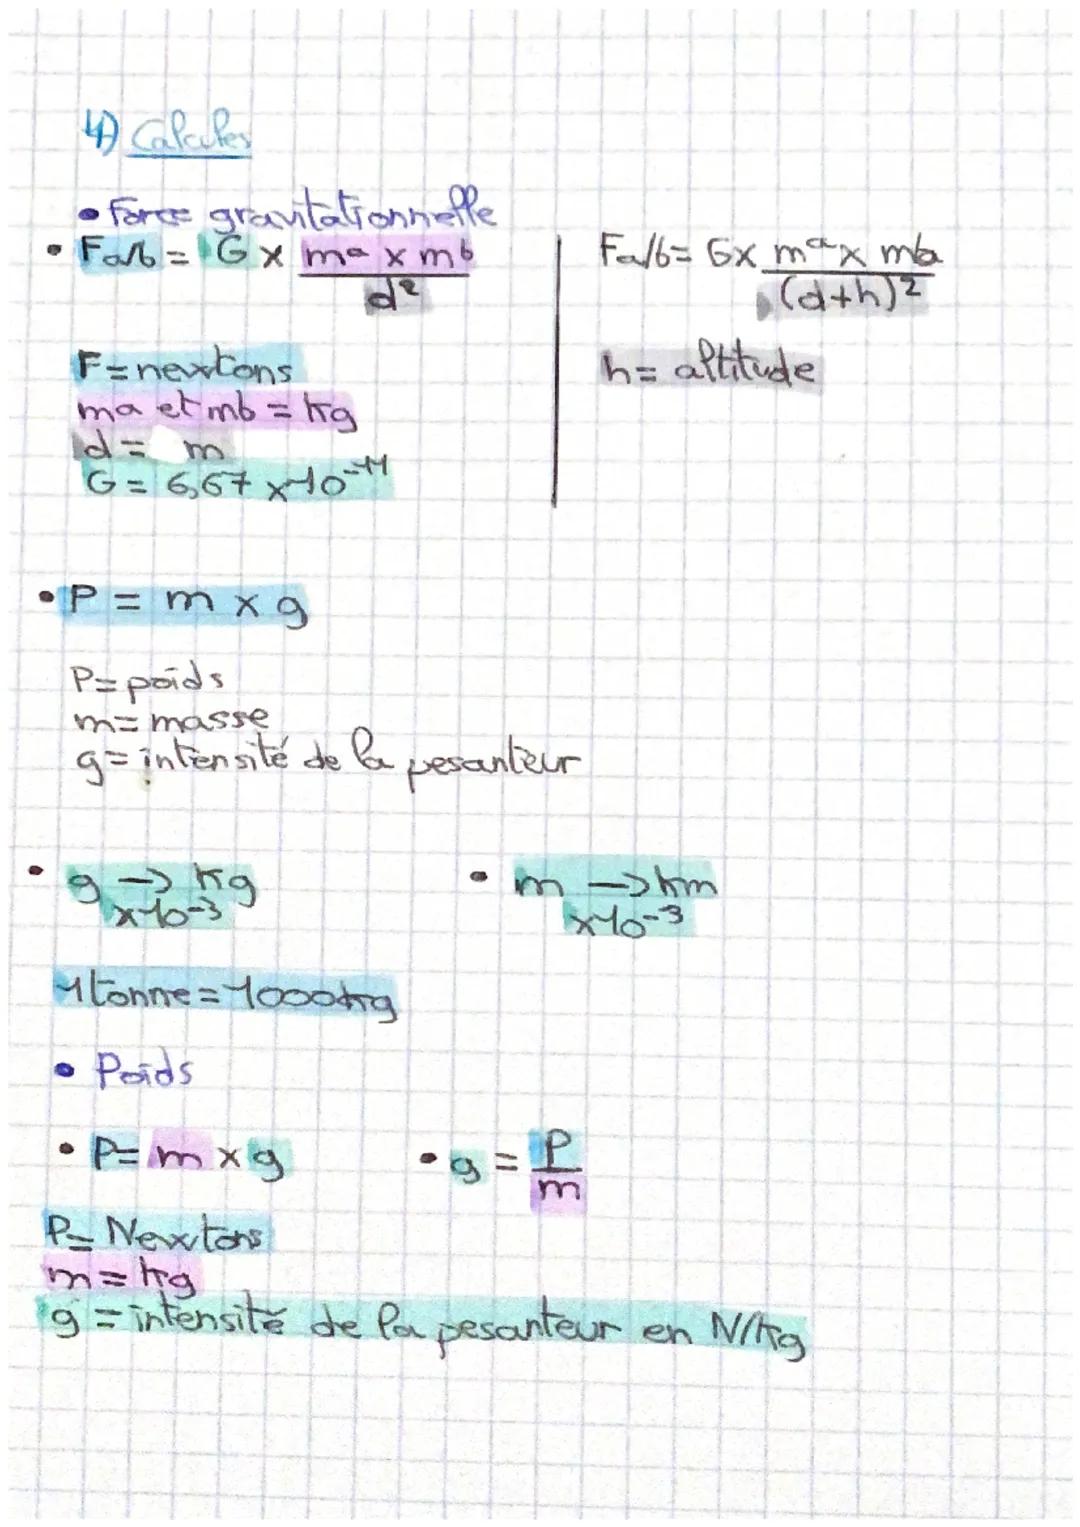 4) Calcules
• Force gravitationnelle
• Fa/b = G x ma x mb
d²
F = newtons
ma et mb = kg
d = m
G = 6,67 x 10⁻¹¹
Fa/b = G x ma x mb
(d+h)²
h = altitude
• P = m x g
P = poids
m = masse
g = intensité de la pesanteur
• g → kg
x10⁻³
• m → km
x10⁻³
1 tonne = 1000kg
• Poids
• P = m x g
• g = P
m
P = Newtons
m = kg
g = intensité de la pesanteur en N/kg